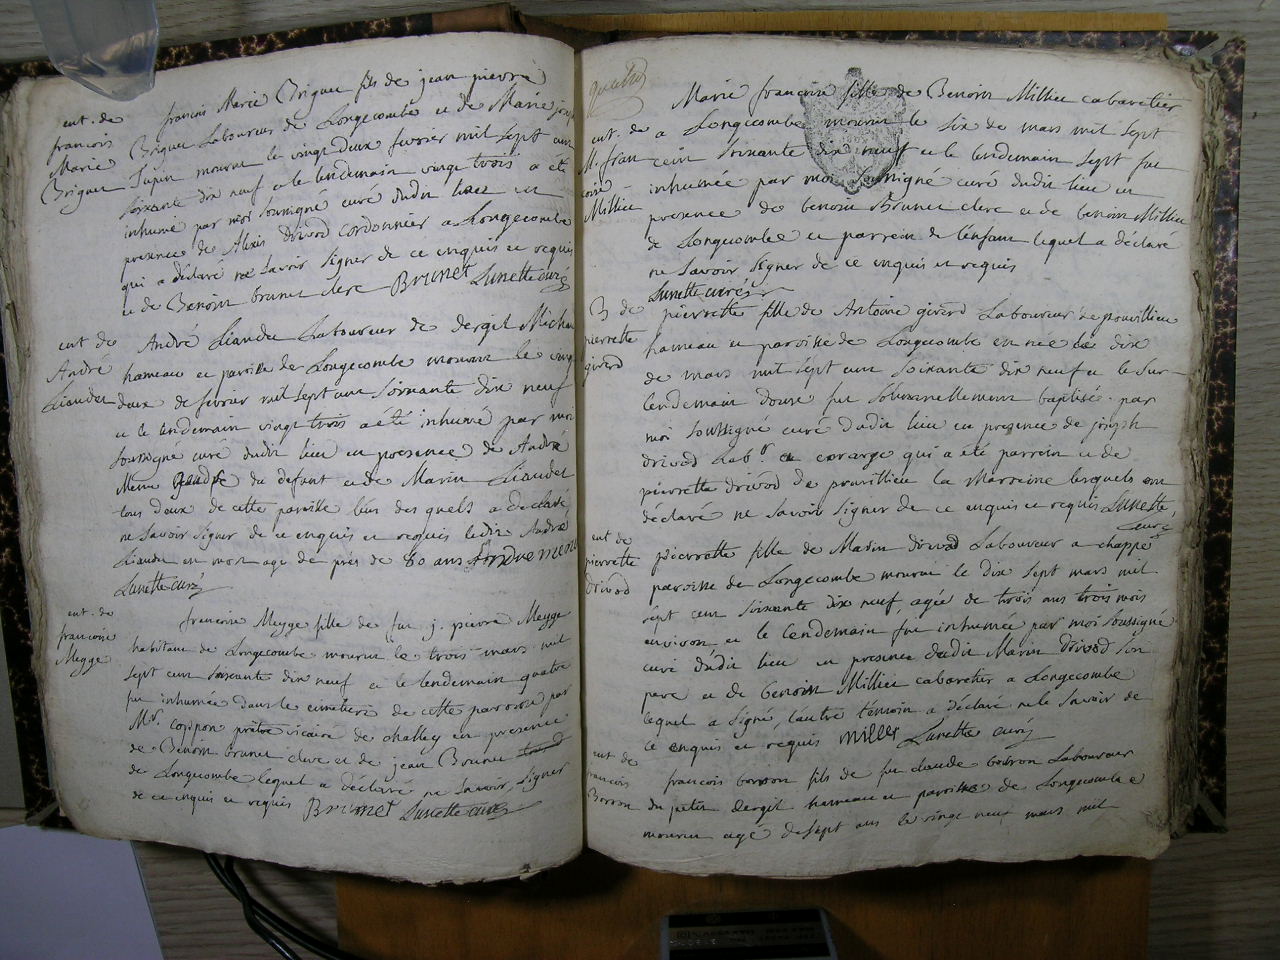 ent. de
françois
Marie
Briguet
françois Marie Briguet fils de jean pierre
Briguet Laboureur de Longecombe et de Marie
Jupin mourut le vingt deux fevrier mil sept cent
soixante dix neuf et le lendemain vingt trois a été
inhumé par moi soussigné curé dudit lieu en
presence de Alexis drivod cordonnier a Longecombe
qui a déclaré ne savoir signer de ce enquis et requis
et de Benoit brunet clerc Brunet Lunette curé
ent de
André
Liaudet
André Liaudet Laboureur de dergit
hameau et paroisse de Longecombe mourut le vingt
deux de fevrier mil sept cent soixante dix neuf
et le lendemain vingt trois a été inhumé par moi
soussigné curé dudit lieu en presence de André
gendre du defunt et de Marin Liaudet
tous deux de cette paroisse l'un des quels a declaré
ne savoir signer de ce enquis et requis ledit André
Liaudet est mort agé de près de 80 ans
Lunette curé
ent. de
françoise
Megge
françoise Megge fille de feu j. pierre Megge
habitant de Longecombe mourut le trois mars mil
sept cent soixante dix neuf et le lendemain quatre
fut inhumée dans le cimetiere de cette paroisse par
Mr. prêtre vicaire de challey en presence
de Benoit brunet clerc et de jean Brunet
de Longecombe lequel a déclaré ne savoir signer
de ce enquis et requis Brunet Lunette curé
ent. de
M. fran
coise
Milliet
Marie françoise fille de Benoit Milliet cabaretier
a Longecombe mourut le six de mars mil sept
cent soixante dix neuf et le lendemain sept fut
inhumée par moi soussigné curé dudit lieu en
presence de benoit Brunet clerc et de benoit Milliet
de Longecombe et parrein de l'enfant lequel a déclaré
ne savoir signer de ce enquis et requis
Lunette curé
B de
pierrette
girerd
pierrette fille de Antoine girerd Laboureur de prouillieu
hameau et paroisse de Longecombe est née le dix
de mars mil sept cent soixante dix neuf et le sur-
lendemain douze fut solemnellement baptisée par
moi soussigné curé dudit lieu en presence de joseph
drivod qui a été parrein et de
pierrette drivod de prouillieu la Marreine lesquels ont
déclaré ne savoir signer de ce enquis et requis Lunette,
curé
ent de
pierrette
Drivod
pierrette fille de Marin drivod Laboureur a
paroisse de Longecombe mourut le dix sept mars mil
sept cent soixante dix neuf, agée de trois ans trois mois
environ, et le Lendemain fut inhumée par moi soussigné
curé dudit lieu en presence dudit Marin Drivod son
pere et de benoit Milliet cabaretier a Longecombe
lequel a signé, l'autre témoin a déclaré ne le savoir de
ce enquis et requis millet Lunette curé
ent de
françois
Borron
françois borron fils de feu claude borron Laboureur
du petit dergit hameau et paroisse de Longecombe
mourut agé de sept ans le vingt neuf mars mil